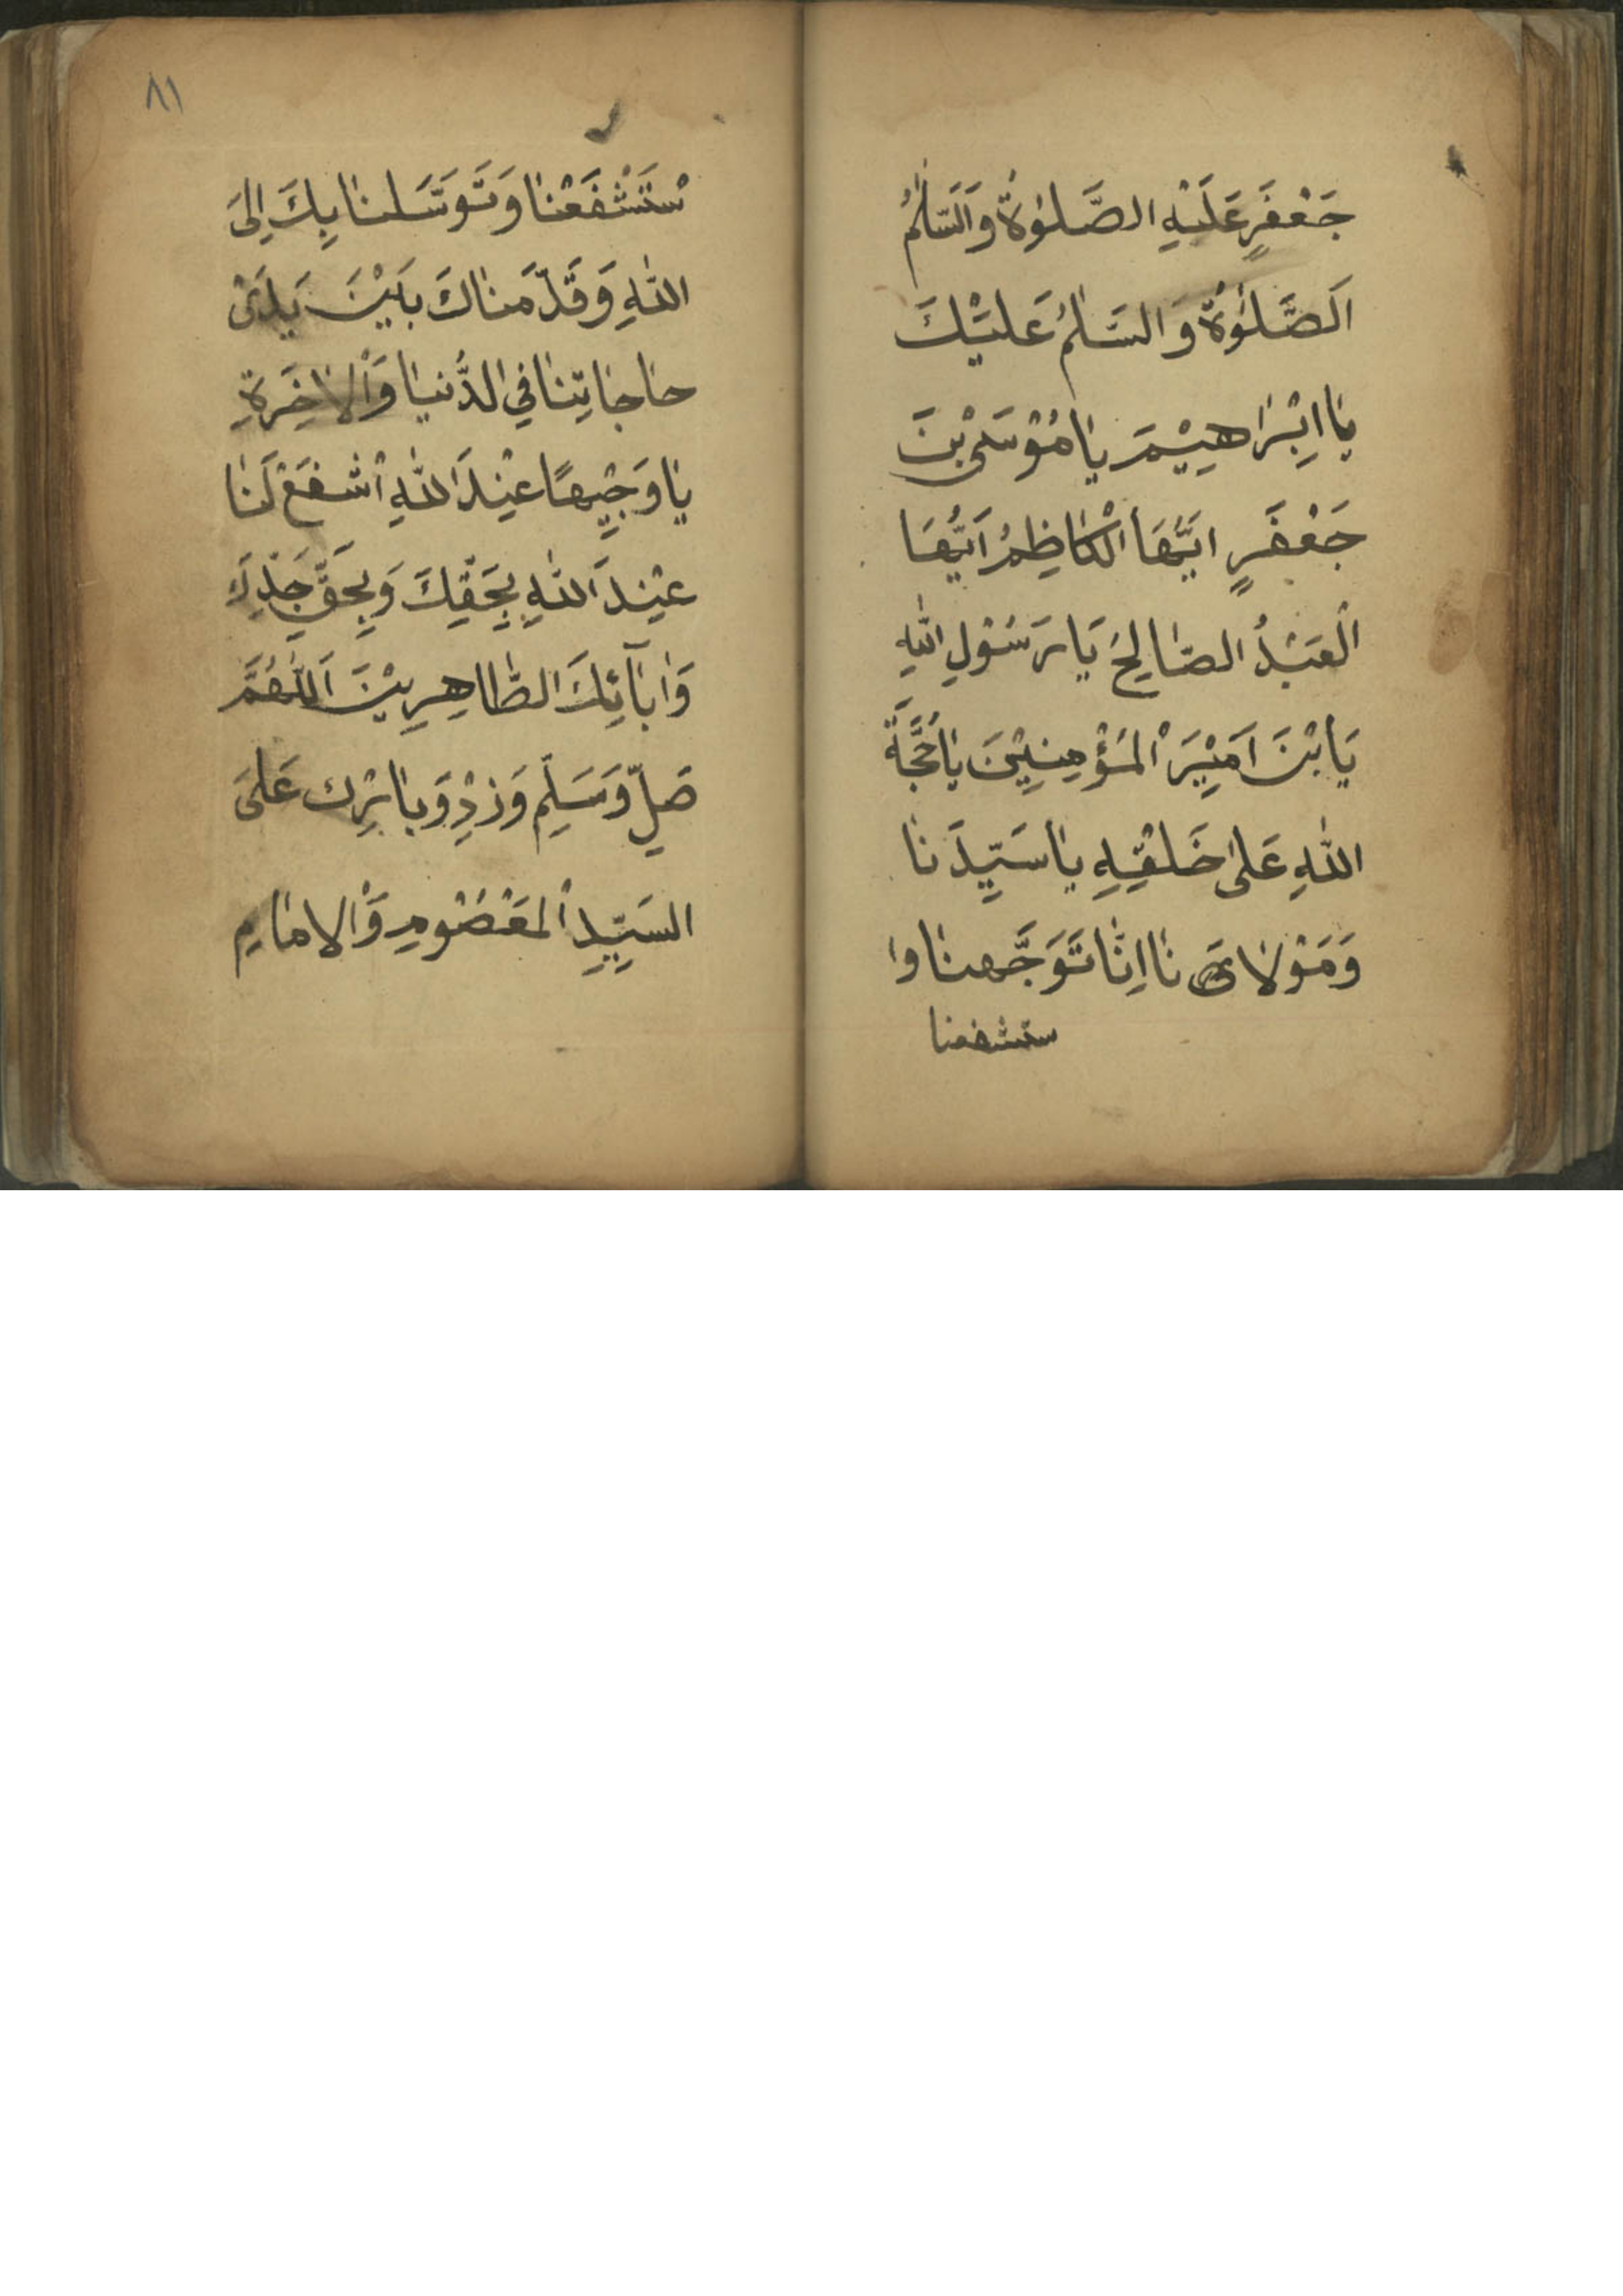 جَعْفَرٍ عَلَيْهِ الصَّلٰوةُ وَالسَّلٰمُ
اَلصَّلٰوةُ وَالسَّلٰمُ عَلَيْكَ
يٰا اِبْرٰاهِيْمَ يٰا مُوْسَى بْنَ
جَعْفَرٍ اَيُّهَا الْكٰاظِمُ اَيُّهَا
الْعَبْدُ الصّٰالِحُ يَا رَسُوْلِ اللّٰهِ
يَا بْنَ اَمِيْرَ الْمُؤْمِنِيْنَ يٰا حُجَّةَ
اللّٰهِ عَلىٰ خَلْقِهِ يٰا سَيِّدَنٰا
وَمَوْلٰایَ نٰا اِنّٰا تَوَجَّهنٰا وا
ستشفعنا
٨١
سْتَشْفَعْنٰا وَتَوَسَّلنٰا بِكَ اِلىَ
اللّٰهِ وَقَدَّمنٰاكَ بَيْنَ يَدَىْ
حٰاجٰاتِنٰا فِي الدُّنيٰا وَالْاٰخِرَةِ
يٰا وَجِيْهًا عِنْدَ اللّٰهِ اشْفَعْ لَنٰا
عِنْدَ اللّٰهِ بِحَقِّكَ وَبِحَقِّ جَدِّكَ
وَاٰبٰآئِكَ الطّٰاهِرِيْنَ اَللّٰهُمَّ
صَلِّ وَسَلِّمِ وَزِدْ وَبٰارِك عَلىَ
السَيِّدِ الْمَعْصُوْمِ وَالْامٰامِ